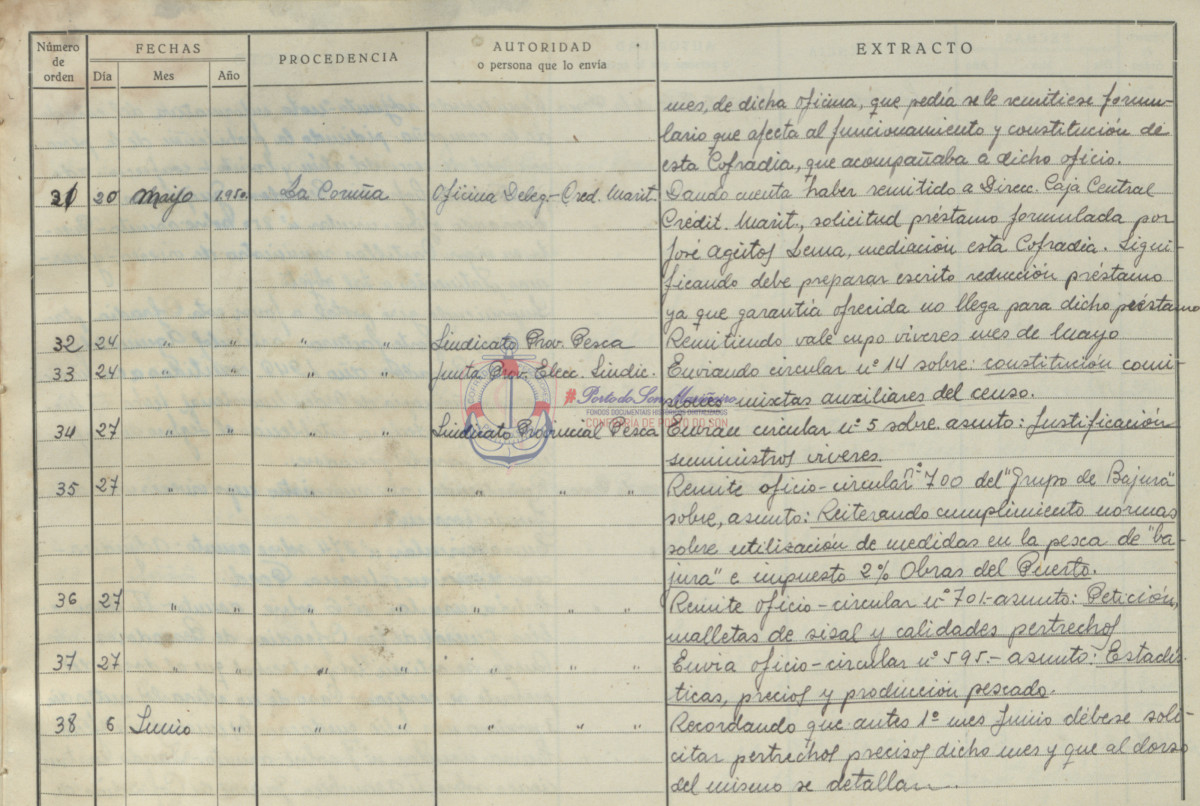 Número de orden
FECHAS
Día Mes Año
PROCEDENCIA
AUTORIDAD
o persona que lo envía
EXTRACTO
mes, de dicha oficina, que pedía se le remitiese formu-
lario que afecta al funcionamiento y constitución de
esta Cofradia, que acompañaba a dicho oficio.
31 20 Mayo 1950. La Coruña Oficina Deleg.- Cred. Marit. Dando cuenta haber remitido a Direcc. Caja Central
Crédit. Marit., solicitud préstamo formulada por
José Ageitos Lema, mediación esta Cofradia. Signi-
ficando debe preparar escrito reducción préstamo
ya que garantía ofrecida no llega para dicho préstamo
32 24 " " " " Sindicato Prov. Pesca Remitiendo vale cupo viveres mes de Mayo
33 24 " " " " Junta Prov. Elecc. Sindic. Enviando circular nº 14 sobre: constitución comi-
siones mixtas auxiliares del censo.
#PortodoSonMariñeiro
FONDOS DOCUMENTAIS HISTÓRICOS DIXITALIZADOS
CONFRARÍA DE PORTO DO SON
34 27 " " " " Sindicato Provincial Pesca Envian circular nº 5 sobre asunto: Justificación
suministros viveres.
35 27 " " " " " " " Remite oficio-circular nº 700 del "Grupo de Bajura"
sobre, asunto: Reiterando cumplimiento normas
sobre utilización de medidas en la pesca de "ba-
jura" e impuesto 2% Obras del Puerto.
36 27 " " " " " " " Remite oficio-circular nº 701.- asunto: Petición,
malletas de sisal y calidades pertrechos
37 27 " " " " " " Envia oficio-circular nº 595.- asunto: Estadís-
ticas, precios y producción pescado.
38 6 Junio " " " " " " Recordando que antes 1º mes Junio débese soli-
citar pertrechos precisos dicho mes y que al dorso
del mismo se detallan.